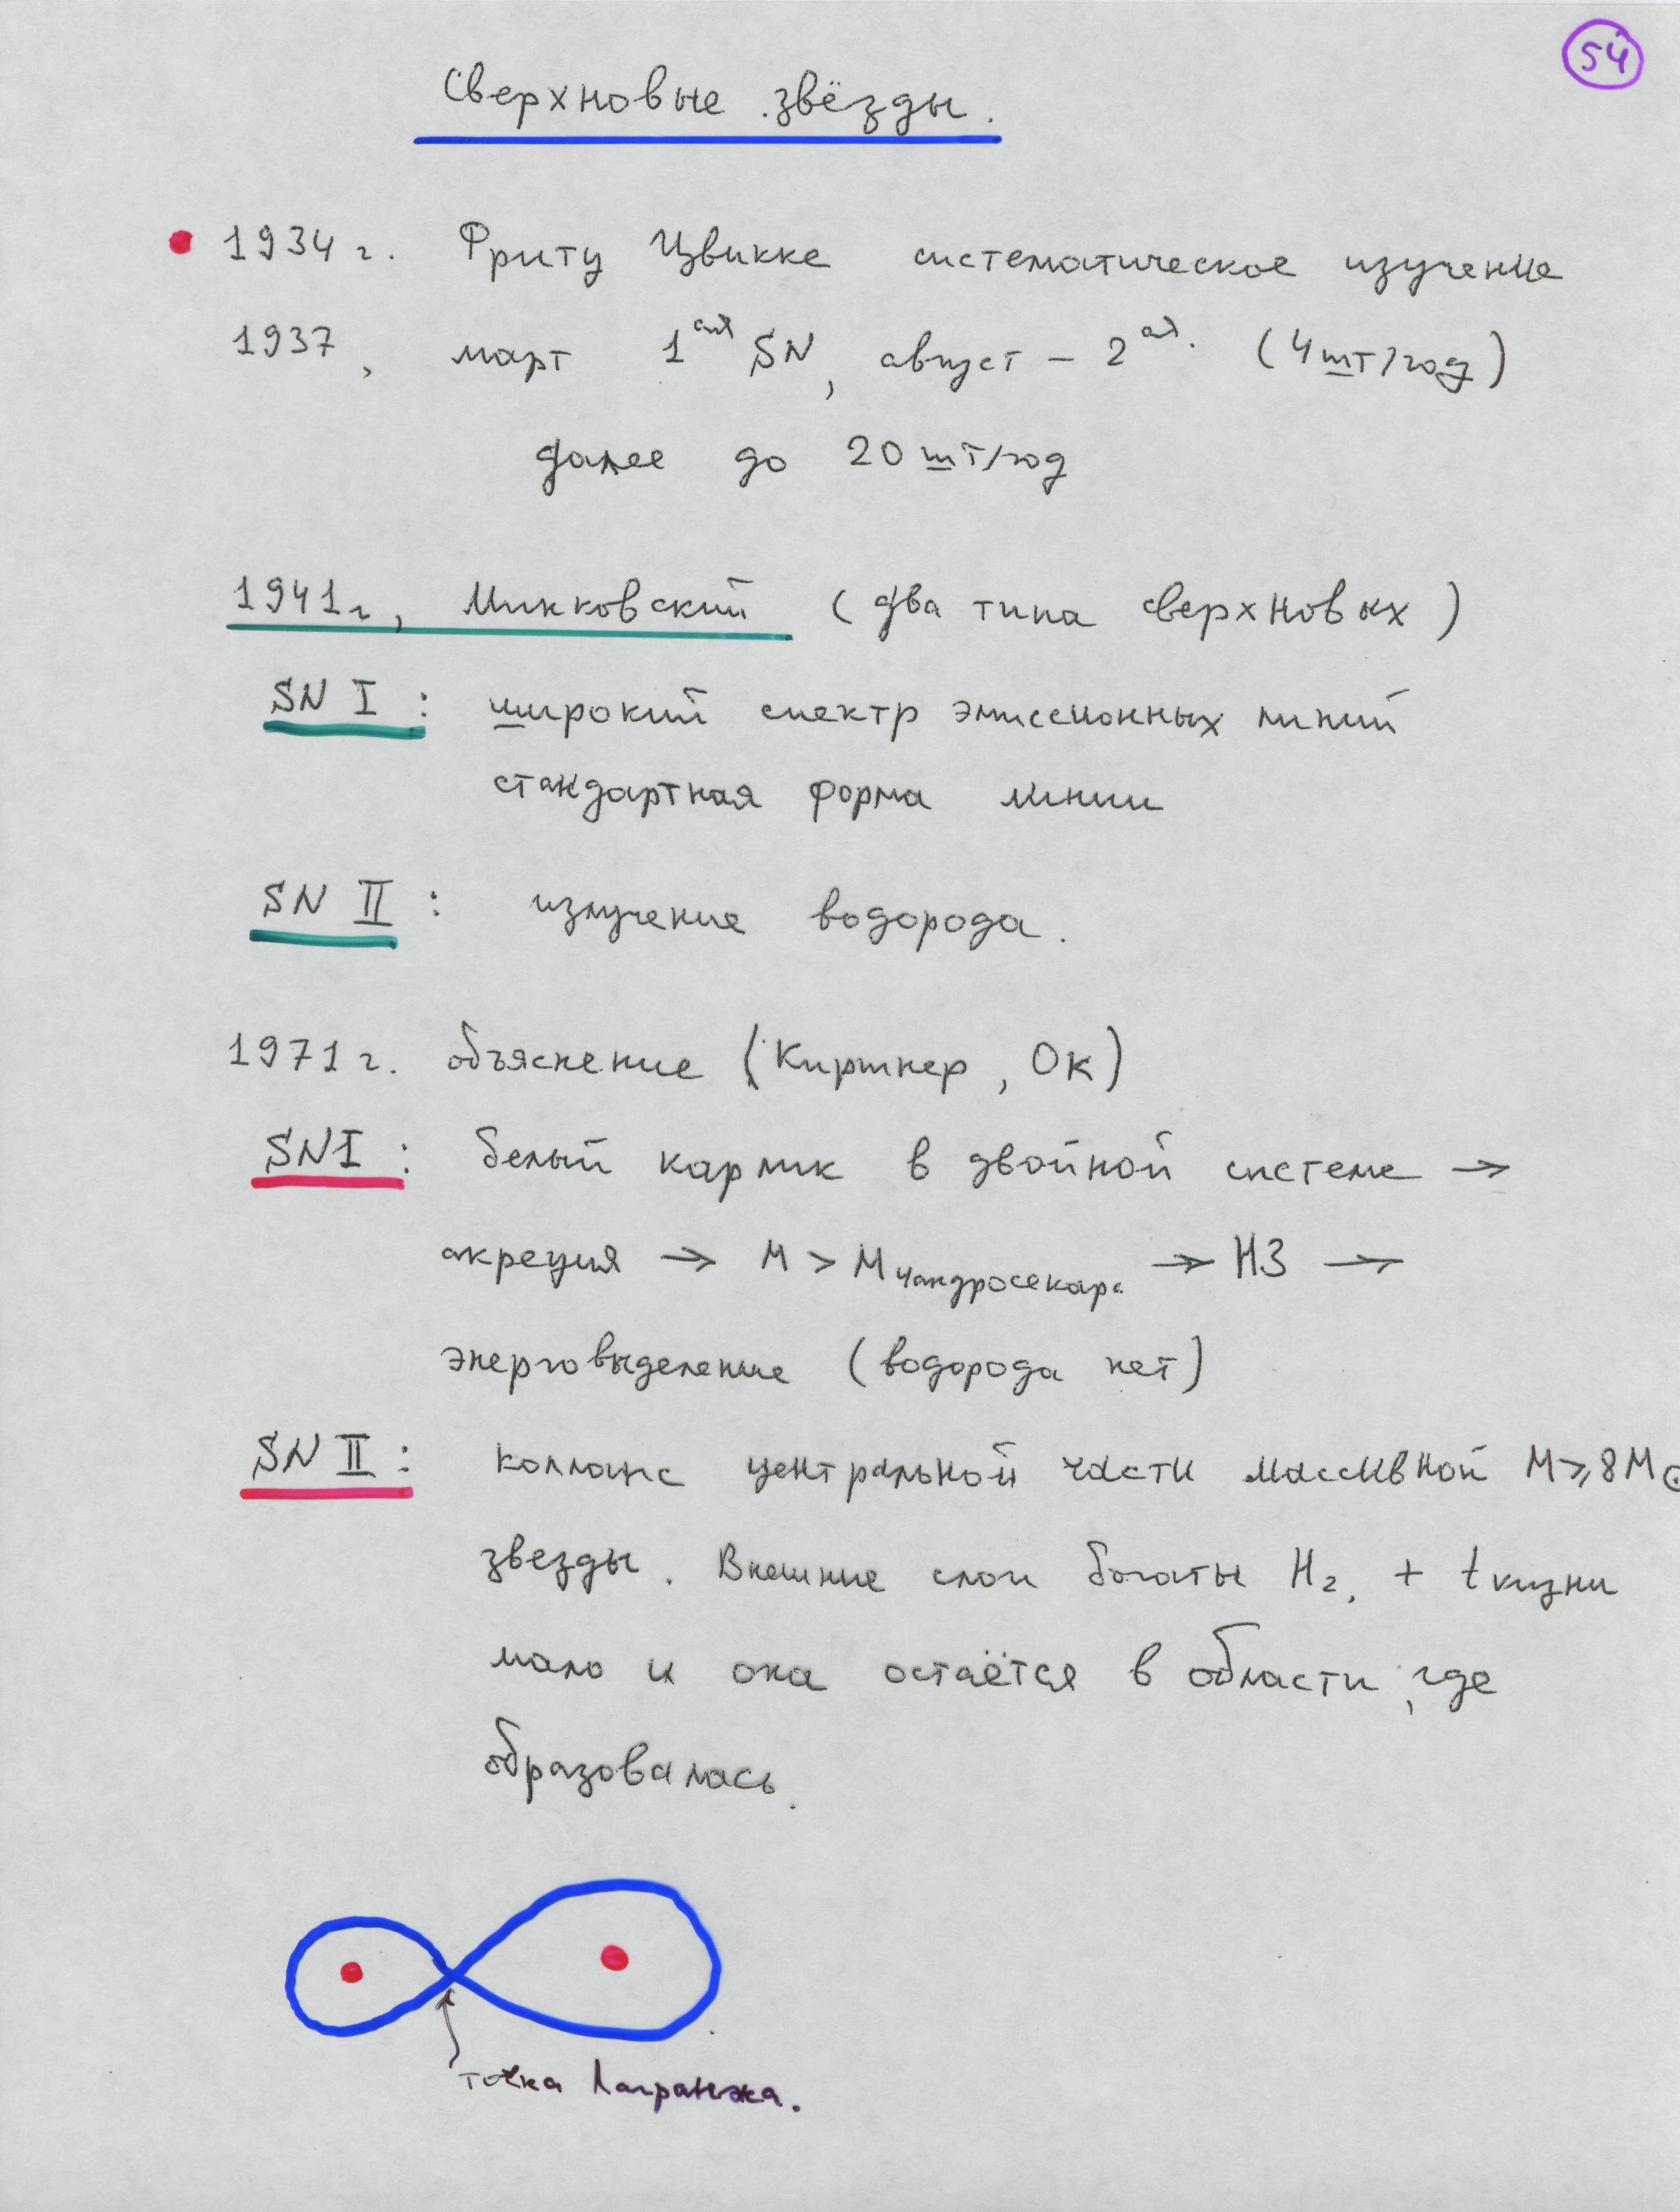 54
Сверхновые звёзды.
1934 г. Фритц Цвикке систематическое изучение
1937, март 1ая SN, август – 2ая. (4 шт/год)
далее до 20 шт/год
1941 г, Минковский (два типа сверхновых)
SN I : широкий спектр эмиссионных линий
стандартная форма линии
SN II : излучение водорода.
1971 г. объяснение (Киршнер, Ок)
SN I : белый карлик в двойной системе →
акреция → M > Mчандросекара → НЗ →
энерговыделение (водорода нет)
SN II : коллапс центральной части массивной M ⩾ 8M⊙
звезды. Внешние слои богаты H2, + tжизни
мало и она остаётся в области, где
образовалась.
точка Лагранжа.